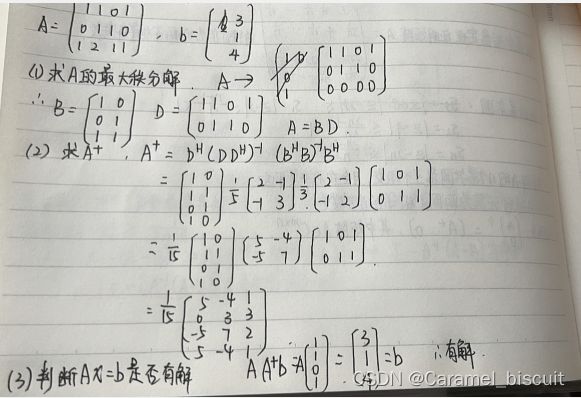 A = [1 1 0 1; 0 1 1 0; 1 2 1 1] , b = [3; 1; 4]
(1) 求A的最大秩分解. A → [1 1 0 1; 0 1 1 0; 0 0 0 0]
∴ B = [1 0; 0 1; 1 1] D = [1 1 0 1; 0 1 1 0] A = BD.
(2) 求A⁺ . A⁺ = Dᴴ(DDᴴ)⁻¹ (BᴴB)⁻¹Bᴴ
= [1 0; 1 1; 0 1; 1 0] 1/5 [2 -1; -1 3] 1/3 [2 -1; -1 2] [1 0 1; 0 1 1]
= 1/15 [1 0; 1 1; 0 1; 1 0] [5 -4; -5 7] [1 0 1; 0 1 1].
= 1/15 [5 -4 1; 0 3 3; -5 7 2; 5 -4 1]
(3) 判断Ax=b是否有解 AA⁺b = A[1; 1; 0; 1] = [3; 1; 4] = b ∴有解.
CSDN @Caramel_biscuit